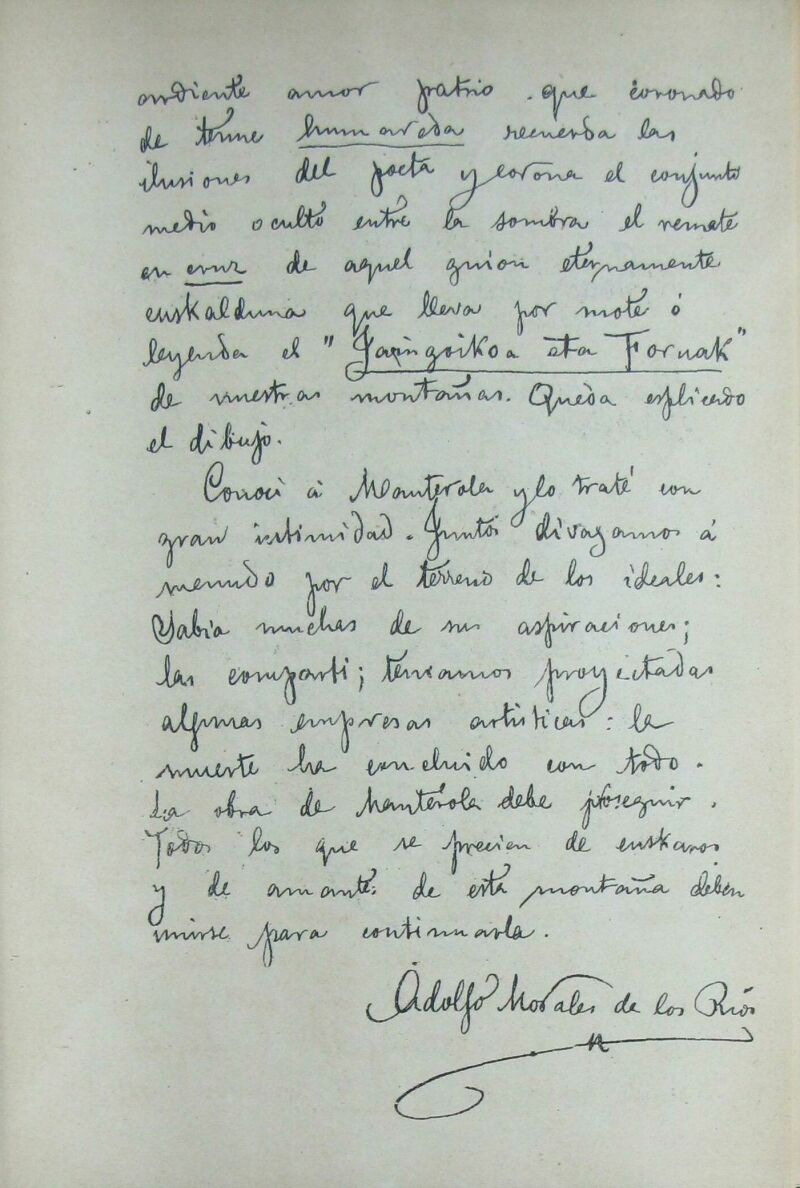 ardiente amor patrio que coronado
de tenue humareda recuerda las
ilusiones del poeta y corona el conjunto
medio oculto entre la sombra el remate
en cruz de aquel guion eternamente
euskalduna que lleva por mote ó
leyenda el "Jaungoikoa eta Foruak"
de nuestras montañas. Queda esplicado
el dibujo.
Conocí á Manterola y lo traté con
gran intimidad. Juntos divagamos á
menudo por el terreno de los ideales:
Sabia muchas de sus aspiraciones;
las compartí; teniamos proyectadas
algunas empresas artisticas: la
muerte ha concluido con todo.
La obra de Manterola debe proseguir.
Todos los que se precien de euskaros
y de amantes de esta montaña deben
unirse para continuarla.
Adolfo Morales de los Rios